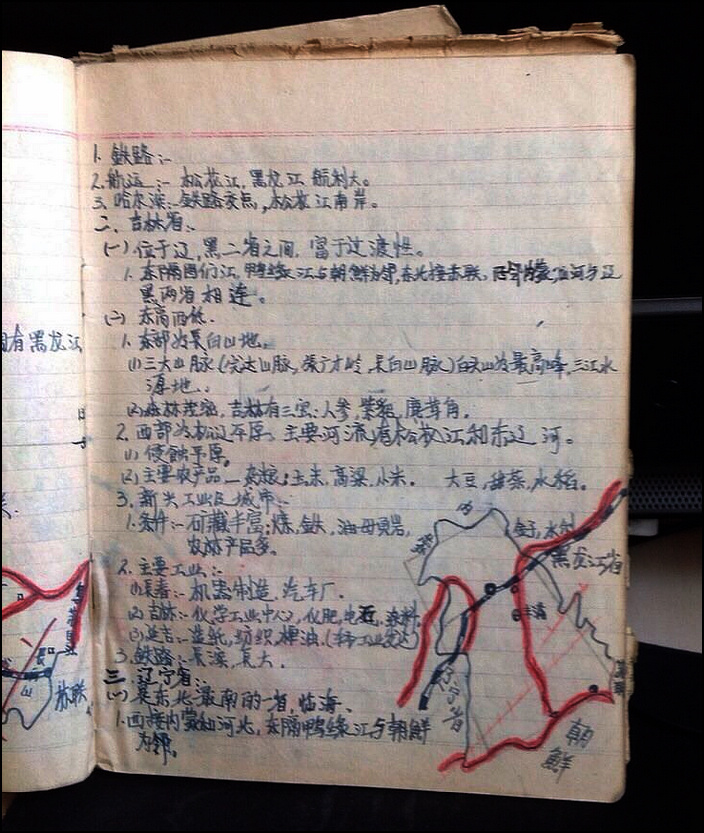 1. 铁路:-
2. 航运:- 松花江,黑龙江 航利大。
3. 哈尔滨:- 铁路交点,松花江南岸。
二、吉林省:-
(一) 位于辽,黑二省之间,富于过渡性。
1. 东隔图们江,鸭绿江与朝鲜为邻,东北接苏联,西邻内蒙,
黑两省相连。
(二) 东高西低.
1. 东部为长白山地.
(1) 三大山脉(完达山脉,张广才岭,长白山脉)白头山为最高峰,三江水
源地.
(2) 森林茂密,吉林有三宝:人参,紫貂,鹿茸角。
2. 西部为松辽平原,主要河流有松花江和东辽河。
(1) 侵蚀平原。
(2) 主要农产品—杂粮:玉米,高粱,小米. 大豆,甜菜,水稻。
3. 新兴工业及城市:-
1. 条件:- 矿藏丰富:煤,铁,油母页岩,
农林产品多。
2. 主要工业:-
(1) 长春:- 机器制造,汽车厂.
(2) 吉林:- 化学工业中心,化肥,电石,染料.
(3) 延吉:- 造纸,纺织,榨油.
3. 铁路:- 长滨,长大.
三. 辽宁省:-
(一) 是东北最南的一省,临海.
1. 西接内蒙和河北,东隔鸭绿江与朝鲜
为邻。
黑龙江省
辽宁省
朝
鲜
有黑龙江
苏联